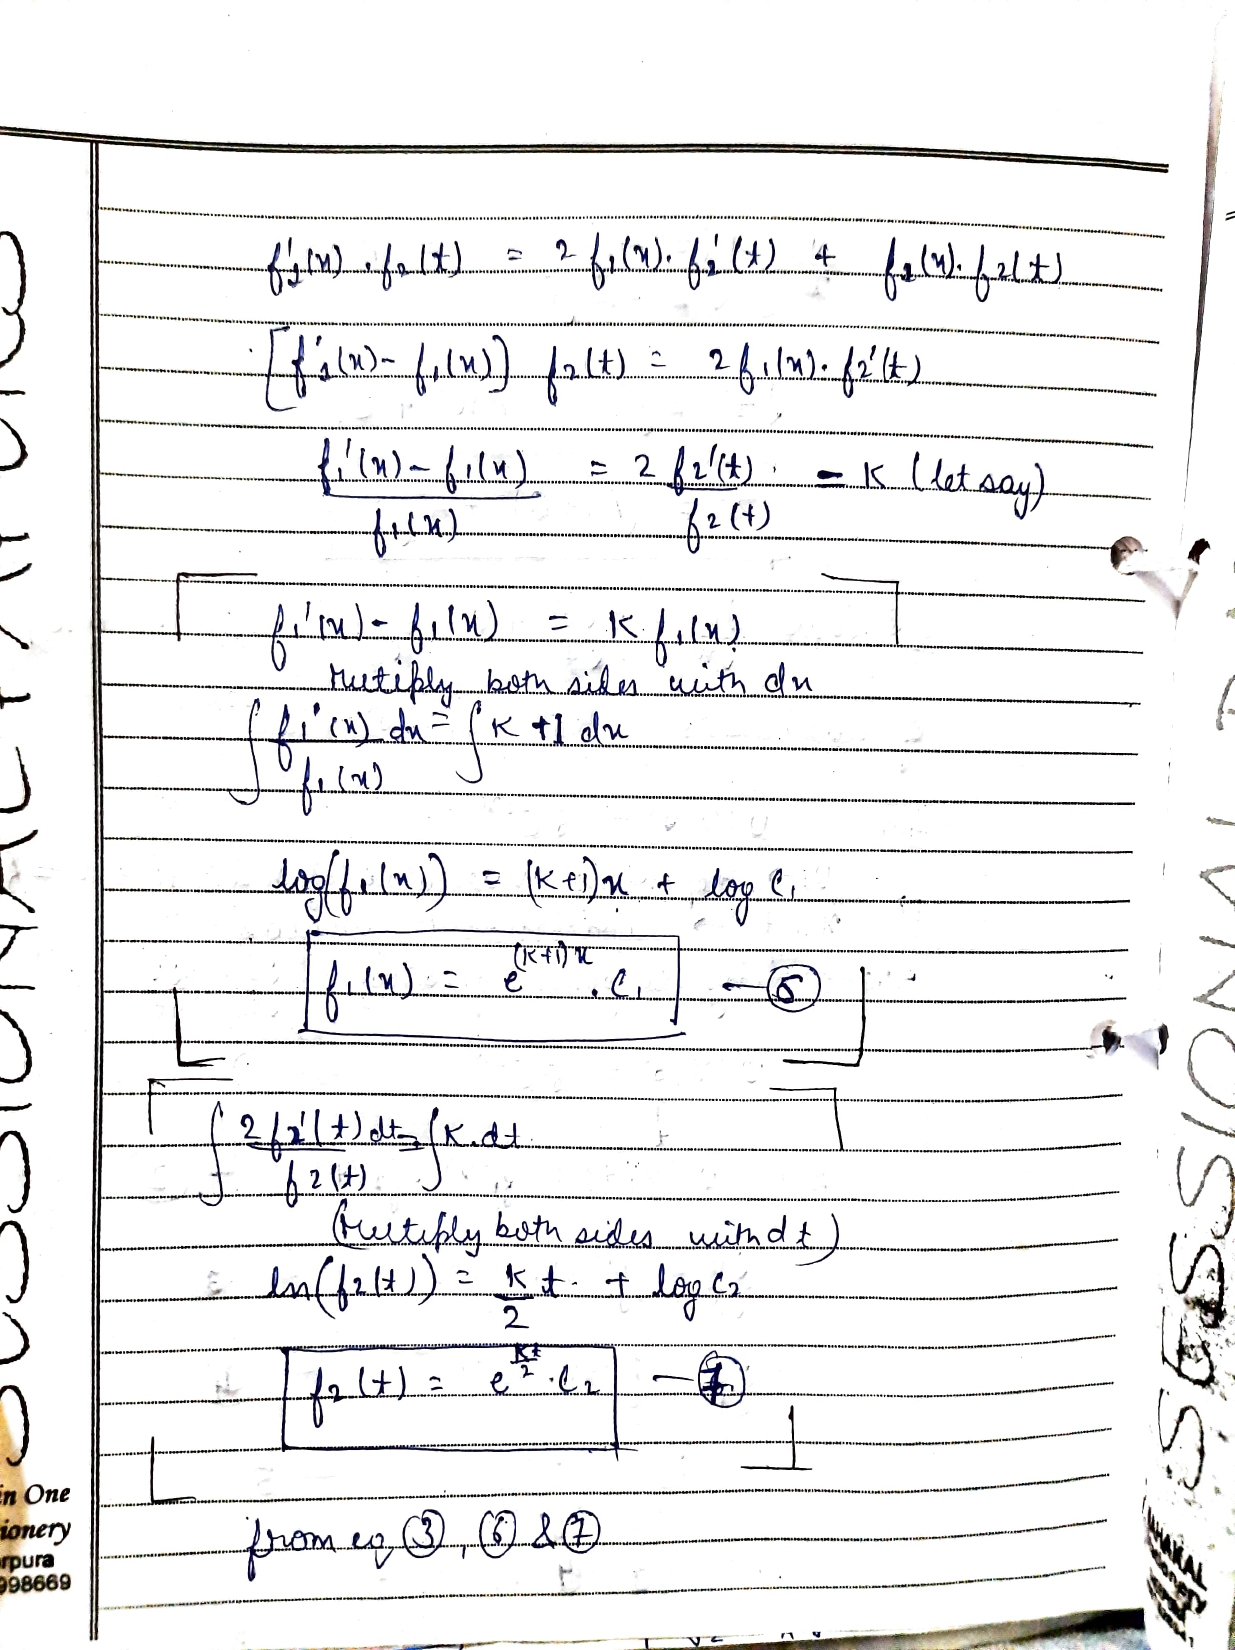 f₁'(x) . f₂(t) = 2 f₁(x). f₂'(t) + f₁(x). f₂(t)
[f₁'(x) - f₁(x)] f₂(t) = 2 f₁(x). f₂'(t)
f₁'(x) - f₁(x) = 2 f₂'(t) = K (let say)
f₁(x) f₂(t)
f₁'(x) - f₁(x) = K f₁(x)
Mutiply both sides with dx
∫ f₁'(x) dx = ∫ K +1 dx
f₁(x)
log(f₁(x)) = (K+1)x + log C₁
f₁(x) = e^(K+1)x . C₁ - ⑥
∫ 2 f₂'(t) dt = ∫ K. dt
f₂(t)
(Mutiply both sides with dt)
ln(f₂(t)) = K/2 t + log C₂
f₂(t) = e^Kt/2 . C₂ - ⑦
from eq ③, ⑥ & ⑦
in One
ionery
rpura
998669
SESSIONAL